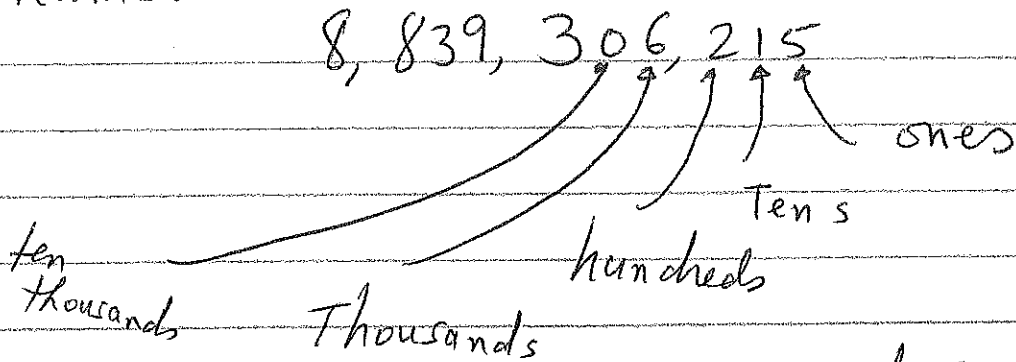 8, 839, 306, 215
ones
Tens
hundreds
ten
thousands
Thousands